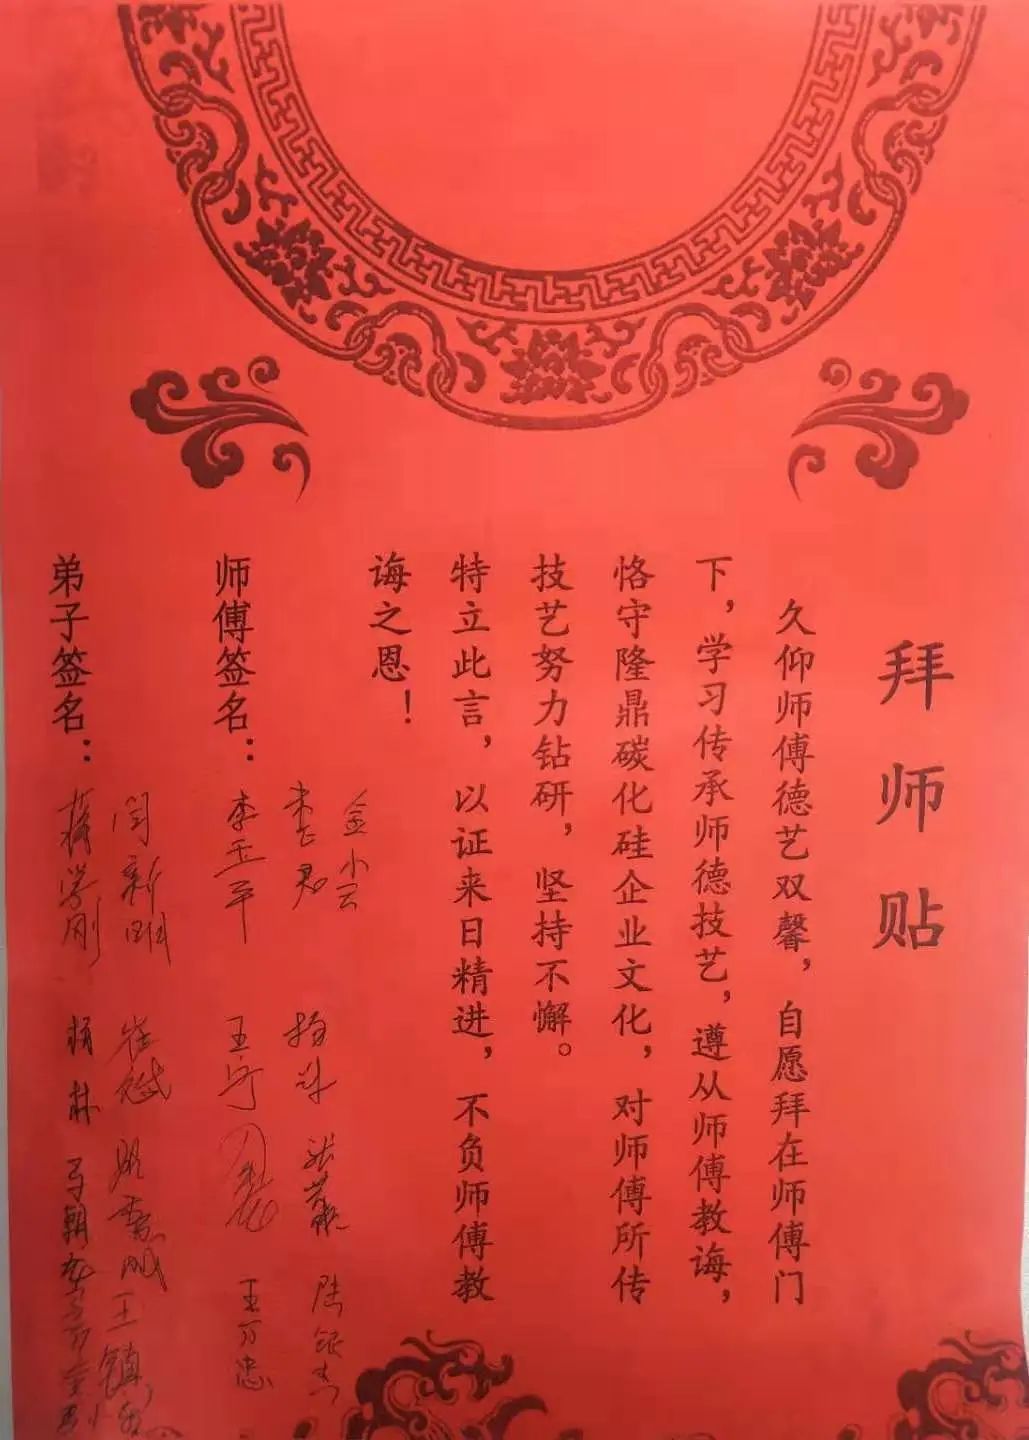 拜师贴
久仰师傅德艺双馨，自愿拜在师傅门
下，学习传承师德技艺，遵从师傅教诲，
恪守隆鼎碳化硅企业文化，对师傅所传
技艺努力钻研，坚持不懈。
特立此言，以证来日精进，不负师傅教
诲之恩！
金小云
陈银杰
师傅签名：李玉平 王宁 王万忠
闫新刚 王镇
弟子签名：蒋学刚 杨林